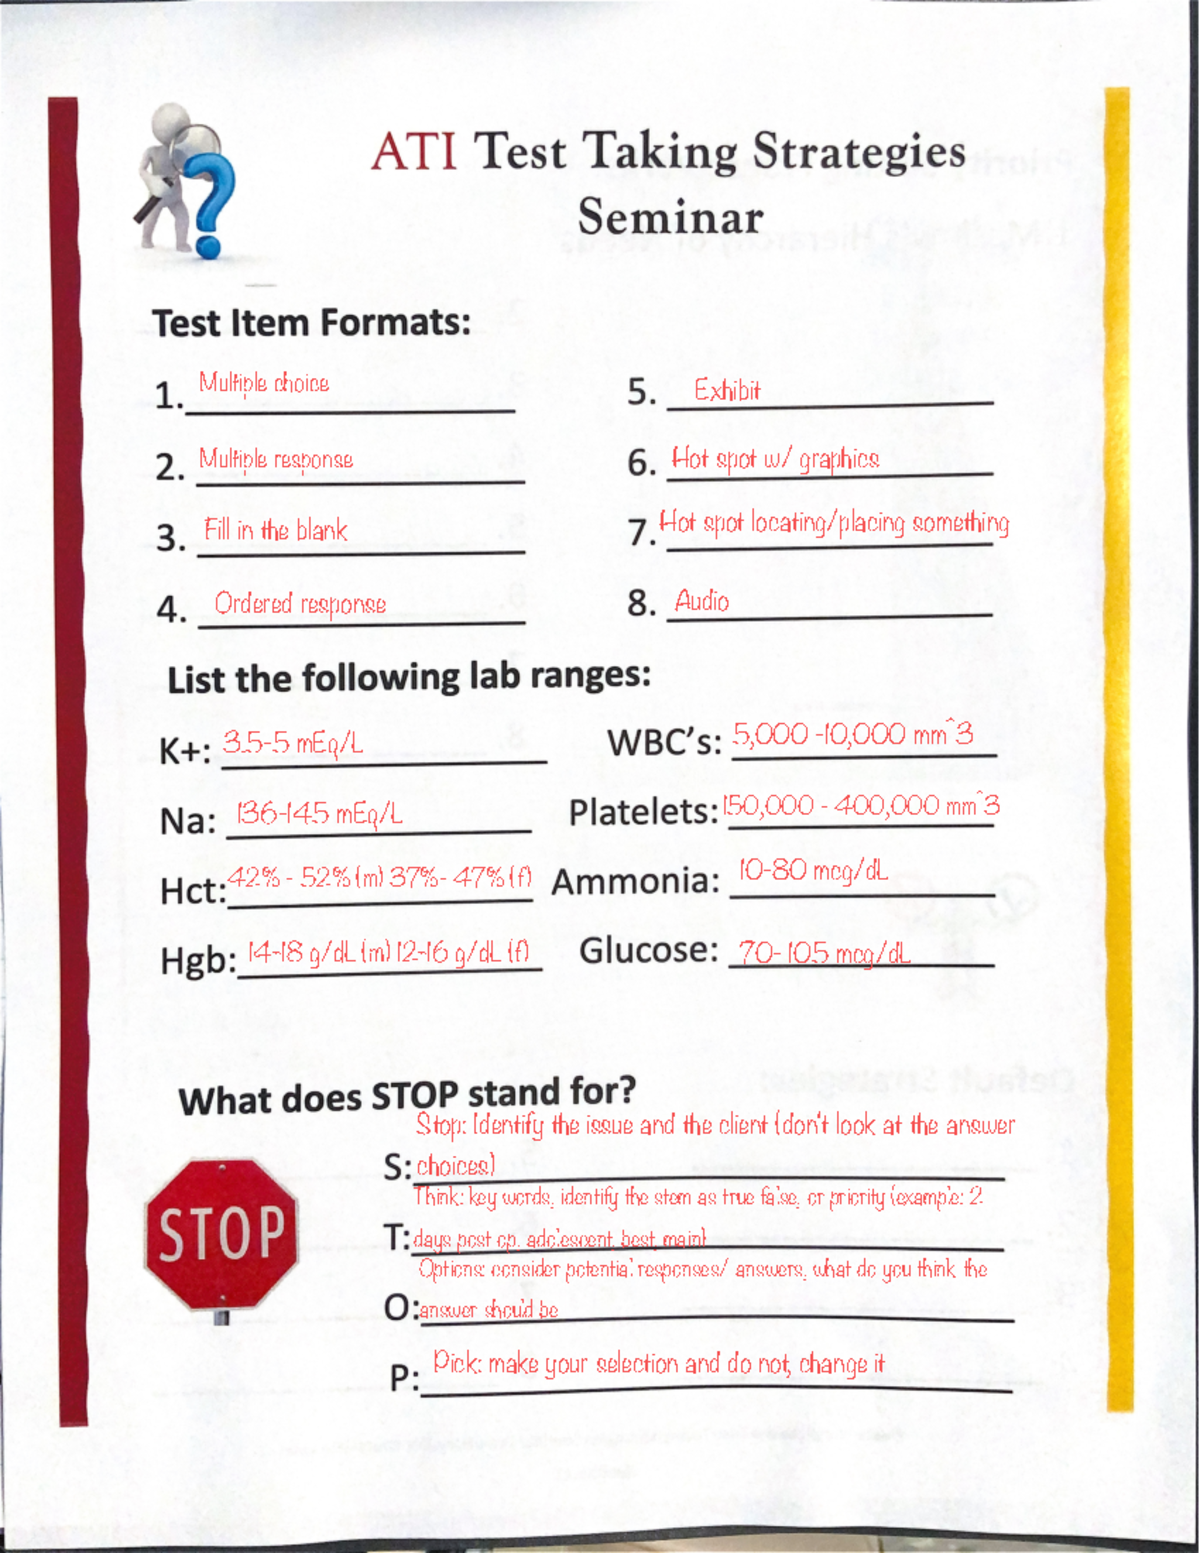 ATI Test Taking Strategies
Seminar
Test Item Formats:
1. Multiple choice
2. Multiple response
3. Fill in the blank
4. Ordered response
5. Exhibit
6. Hot spot w/ graphics
7. Hot spot locating/placing something
8. Audio
List the following lab ranges:
K+: 3.5-5 mEq/L
Na: 136-145 mEq/L
Hct: 42% - 52% (m) 37% - 47% (f)
Hgb: 14-18 g/dL (m) 12-16 g/dL (f)
WBC's: 5,000 -10,000 mm^3
Platelets: 150,000 - 400,000 mm^3
Ammonia: 10-80 mcg/dL
Glucose: 70-105 mcg/dL
What does STOP stand for?
Stop: Identify the issue and the client (don't look at the answer
S: choices)
Think: key words, identify the stem as true false, or priority (example: 2
T: days post op, adolescent, best, main)
Options: consider potential responses/ answers, what do you think the
O: answer should be
P: Pick: make your selection and do not, change it
STOP